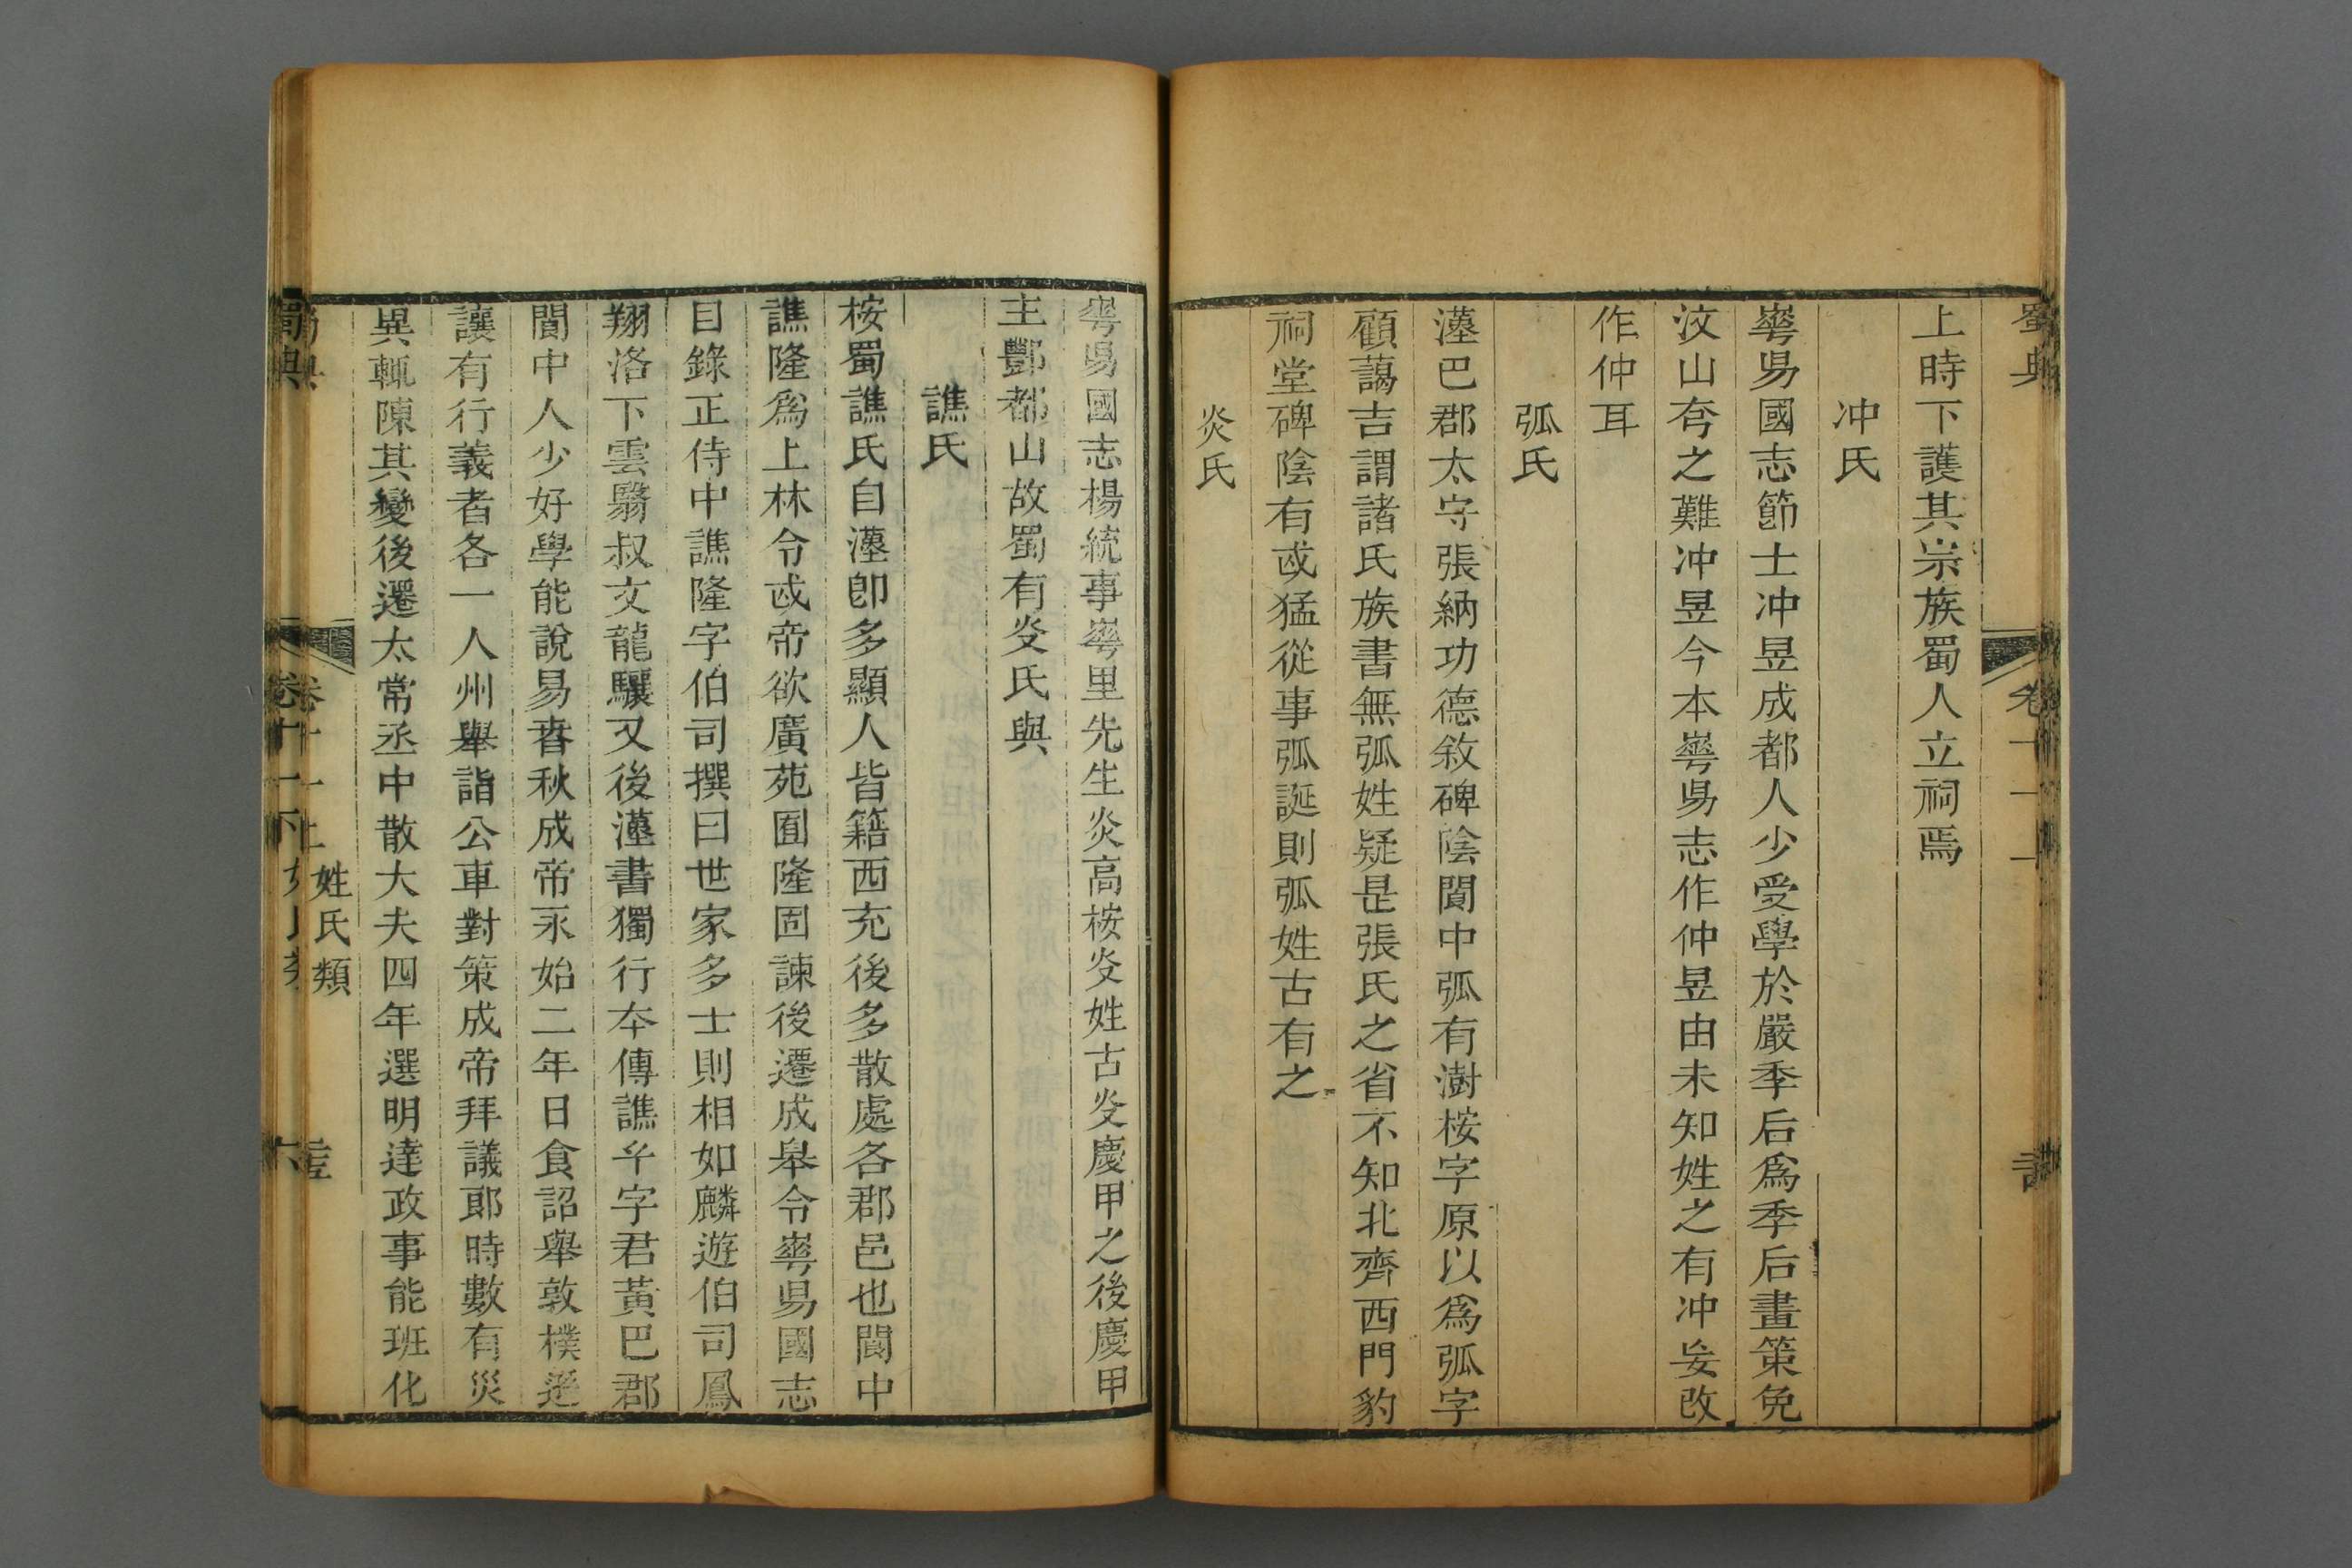 蜀典
卷十一
上時下護其宗族蜀人立祠焉
冲氏
崋昜國志節士冲昱成都人少受學於嚴季后爲季后畫策免
汶山夸之難冲昱今本崋昜志作仲昱由未知姓之有冲妄改
作仲耳
弧氏
漢巴郡太守張納功德敘碑陰閬中弧有澍桉字原以爲弧字
顧藹吉謂諸氏族書無弧姓疑是張氏之省不知北齊西門豹
祠堂碑陰有或猛從事弧誕則弧姓古有之
炎氏
崋昜國志楊統事崋里先生炎高桉炎姓古炎慶甲之後慶甲
主酆都山故蜀有炎氏與
譙氏
桉蜀譙氏自漢卽多顯人皆籍西充後多散處各郡邑也閬中
譙隆爲上林令或帝欲廣苑囿隆固諫後遷成皋令崋昜國志
目錄正侍中譙隆字伯司撰曰世家多士則相如麟遊伯司鳳
翔洛下雲翳叔文龍驤又後漢書獨行夲傳譙玄字君黃巴郡
閬中人少好學能說易春秋成帝永始二年日食詔舉敦樸遜
讓有行義者各一人州舉詣公車對策成帝拜議郎時數有災
異輒陳其變後遷太常丞中散大夫四年選明達政事能班化
蜀典
卷十一上
姓氏類
蜀典
卷十一下